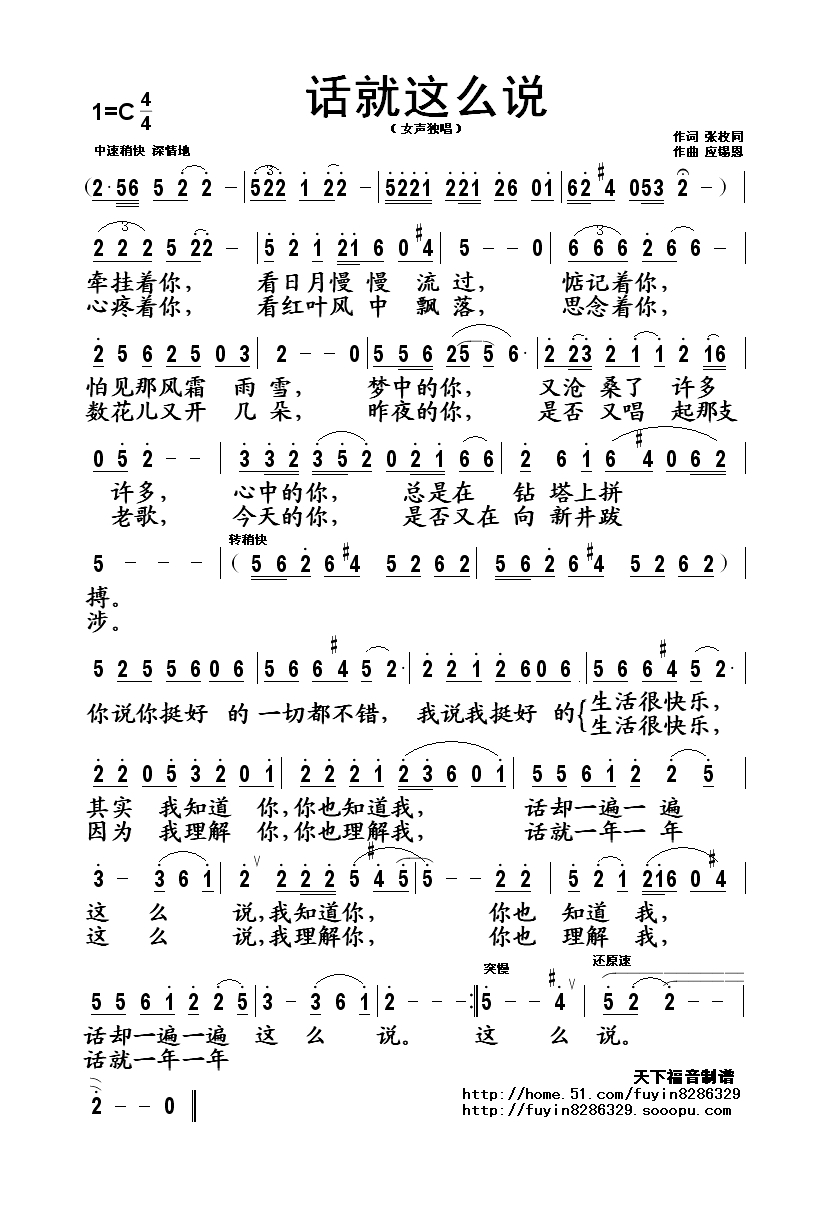 话就这么说
1=C 4/4
（女声独唱）
作词 张枚同
中速稍快 深情地
作曲 应锡恩
(2·56 5 2 2 – | 522 1 22 – | 5221 221 26 01 | 62 #4 053 2 – ) |
2 2 2 5 22 – | 5 2 1 21 6 0 #4 | 5 – – 0 | 6 6 6 2 6 6 – |
牵挂着你， 看日月慢 慢 流 过， 惦记着你，
心疼着你， 看红叶风 中 飘 落， 思念着你，
2 5 6 2 5 0 3 | 2 – – 0 | 5 5 6 25 5 6· | 2 23 2 1 1 2 16 |
怕见那风霜 雨 雪， 梦中的你， 又沧 桑了 许多
数花儿又开 几 朵， 昨夜的你， 是否 又唱 起那支
0 5 2 – – | 3 3 2 3 5 2 0 2 1 6 6 | 2 6 1 6 #4 0 6 2 |
许多， 心中的你， 总是在 钻 塔上拼
老歌， 今天的你， 是否又在 向 新井跋
转稍快
5 – – – | ( 5 6 2 6 #4 5 2 6 2 | 5 6 2 6 #4 5 2 6 2 ) |
搏。
涉。
5 2 5 5 6 0 6 | 5 6 6 #4 5 2· | 2 2 1 2 6 0 6 | 5 6 6 #4 5 2· |
你说你挺好 的 一切都不错， 我说我挺好 的{生活很快乐，
生活很快乐，
2 2 0 5 3 2 0 1 | 2 2 2 1 2 3 6 0 1 | 5 5 6 1 2 2 5 |
其实 我知道 你，你也知道我， 话却一遍一 遍
因为 我理解 你，你也理解我， 话就一年一 年
3 – 3 6 1 | 2 ∨ 2 2 2 5 #4 5 | 5 – – 2 2 | 5 2 1 216 0 #4 |
这 么 说，我知道你， 你也 知道 我，
这 么 说，我理解你， 你也 理解 我，
突慢 还原速
5 5 6 1 2 2 5 | 3 – 3 6 1 | 2 – – – :‖ 5 – #4 ∨ | 5 2 2 – – |
话却一遍一遍 这 么 说。 这 么 说。
话就一年一年
天下福音制谱
2 – – 0 ‖
http://home.51.com/fuyin8286329
http://fuyin8286329.sooopu.com